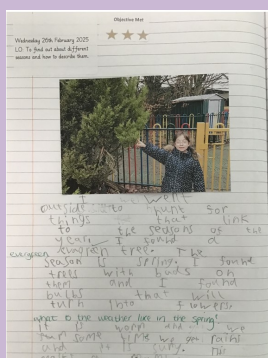 Objective Met
Wednesday 26th February 2025
LO: To find out about different
seasons and how to describe them.
I went
outside to hunt for
things that link
to the seasons of the
year. I found a
evergreen tree. The
season is spring. I found
trees with buds on
them and I found
bulbs that will
turn into flowers.
what is the weather like in the spring?
It is worm and we
some time we get rains
and it is